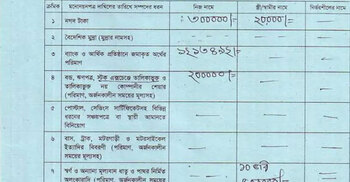 ক্রমিক মনোনয়নপত্র দাখিলের তারিখে সম্পদের ধরন নিজ নামে স্ত্রী/স্বামীর নামে নির্ভরশীলের নামে
১ নগদ টাকা ৩০০০০০/ ২০০০০/
২ বৈদেশিক মুদ্রা (মুদ্রার নামসহ)
৩ ব্যাংক ও আর্থিক প্রতিষ্ঠানে জমাকৃত অর্থের
পরিমাণ
৪ বন্ড, ঋণপত্র, স্টক এক্সচেঞ্জে তালিকাভুক্ত ও ২০০০০০/
তালিকাভুক্ত নয় কোম্পানীর শেয়ার
(পরিমাণ, অর্জনকালীন সময়ের মূল্যসহ)
৫ পোস্টাল, সেভিংস সার্টিফিকেটসহ বিভিন্ন
ধরনের সঞ্চয়পত্রে বা স্থায়ী আমানতে
বিনিয়োগ
৬ বাস, ট্রাক, মটরগাড়ী ও মটরসাইকেল
ইত্যাদির বিবরণী (পরিমাণ, অর্জনকালীন
সময়ের মূল্যসহ)
৭ স্বর্ণ ও অন্যান্য মূল্যবান ধাতু ও পাথর নির্মিত ১০ ভরি
অলংকারাদি (পরিমাণ, অর্জনকালীন সময়ের